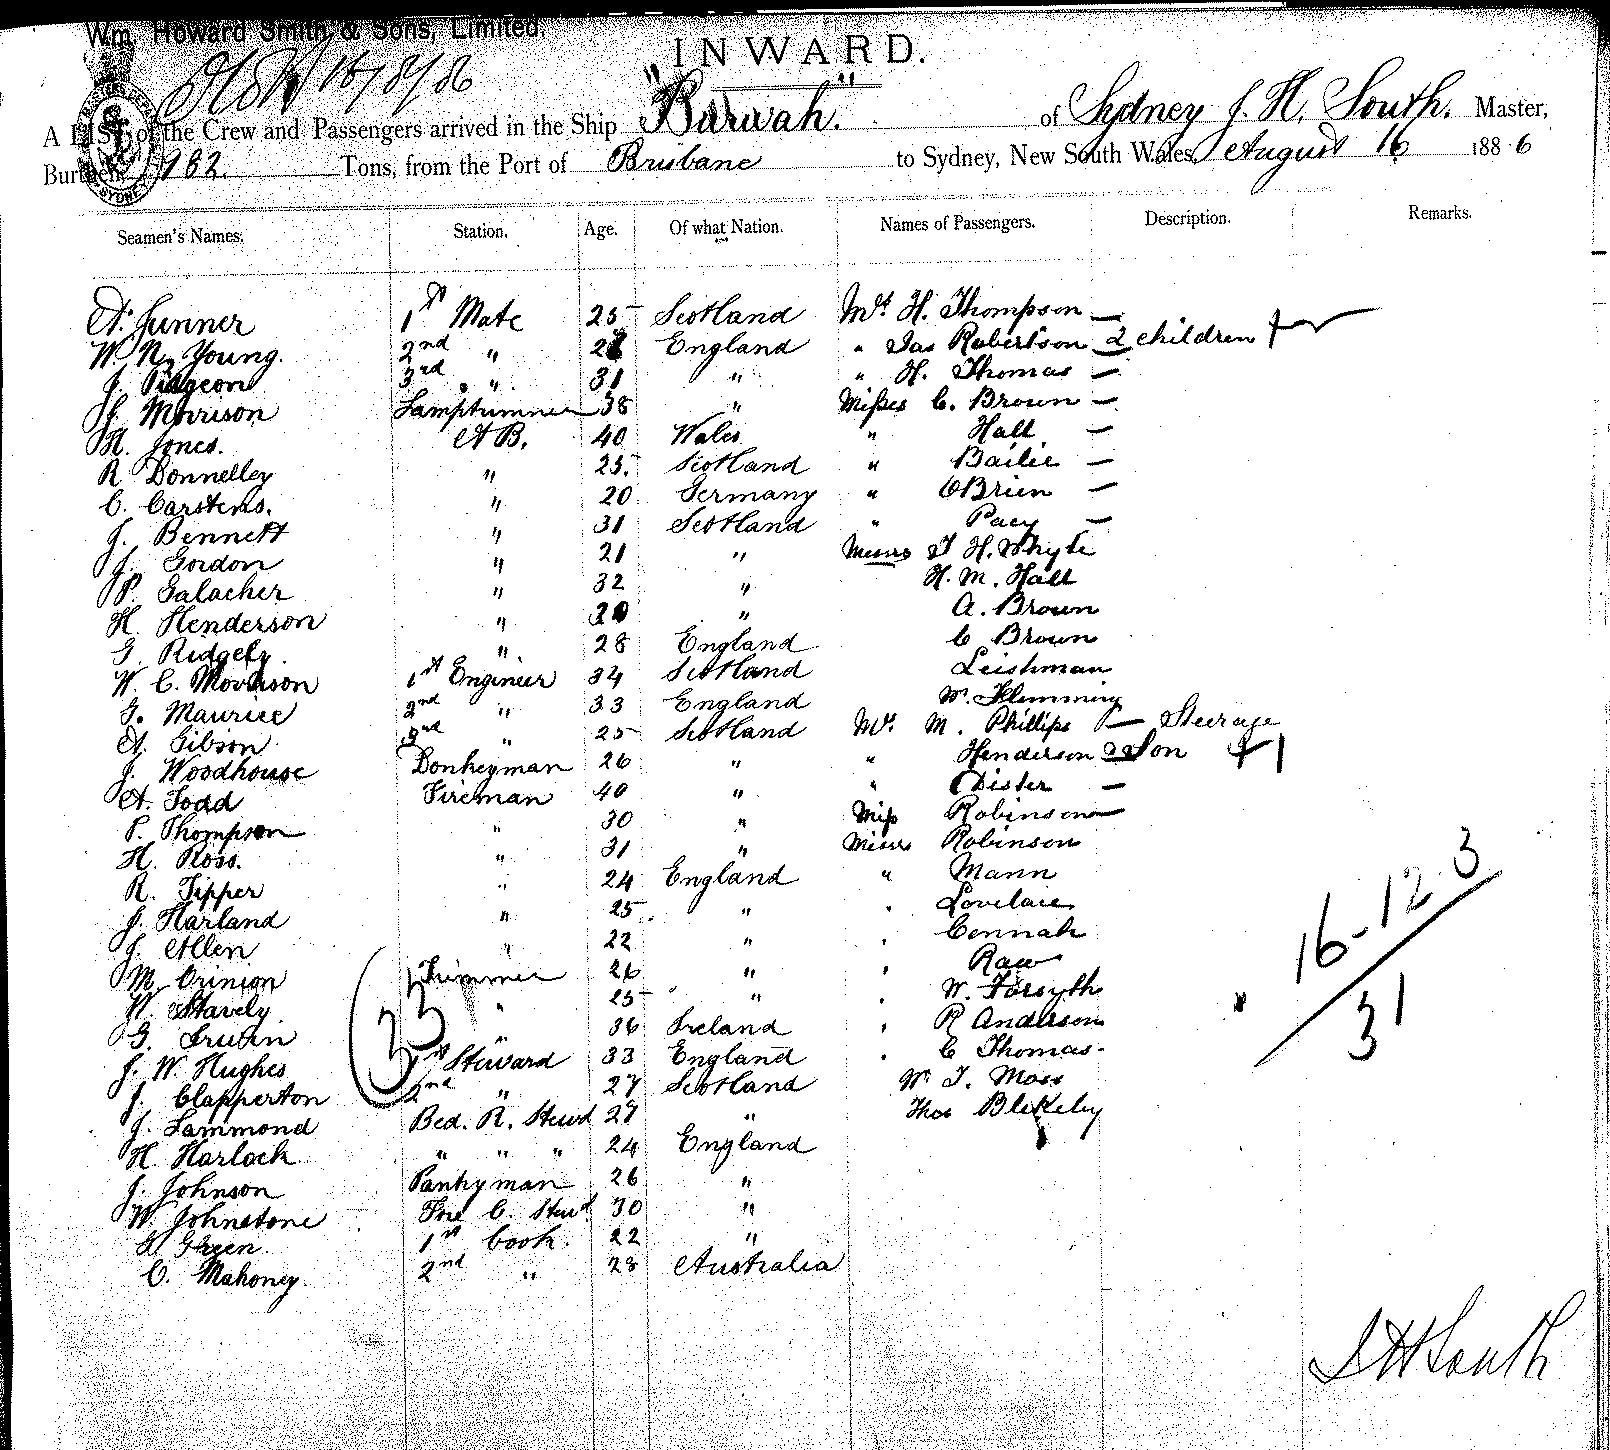 Wm. Howard Smith & Sons, Limited.
16/8/86
INWARD.
A LIST of the Crew and Passengers arrived in the Ship "Burwah." of Sydney J. H. South. Master,
Burthen 982. Tons, from the Port of Brisbane to Sydney, New South Wales, August 16 1886
SYDNEY
Seamen's Names. Station. Age. Of what Nation. Names of Passengers. Description. Remarks.
A. Gunner 1st Mate 25 Scotland Mrs H. Thompson —
W. N. Young. 2nd " England " Jas Robertson — 2 children
J. Pidgeon 3rd " 31 " " H. Thomas —
J. Morrison Lamptrimmer 38 " Misses C. Brown —
M. Jones. A B. 40 Wales " Hall —
R Donnelley " 25. Scotland " Bailie —
C. Carstens. " 20 Germany " O'Brien —
J. Bennett " 31 Scotland " Pacy —
J. Gordon " 21 " Messrs T H. Whyte
P. Galacher " 32 " H. M. Hall
H. Henderson " 20 " A. Brown
G. Ridgely. " 28 England C Brown
W. C. Morrison 1st Engineer 34 Scotland Leishman
G. Maurice 2nd " 33 England Wm. Flemming
A. Gibson 3rd " 25 Scotland Mrs. M. Phillips — Steerage
J. Woodhouse Donkeyman 26 " " Henderson & Son + 1
A. Todd Fireman 40 " " Dister —
P. Thompson " 30 " Miss Robinson —
H. Ross. " 31 " Messrs Robinson
R. Tipper " 24 England " Mann
J. Harland " 25 " " Lovelace
J. Allen " 22 " " Connah
M. Crinion Trimmer 26 " " Raw
W. Stavely " 25 " " W. Forsyth
G. Irwin " 36 Ireland " R Anderson
J. W. Hughes 1st Steward 33 England " C Thomas
J. Clapperton 2nd " 27 Scotland Wm. J. Moss
J. Lammond Bed. R. Stewd 27 " Thos Blekeley
H. Harlock " " " 24 England
J. Johnson Pantryman 26 "
W. Johnstone Fore C. Stewd 30 "
G Green. 1st Cook. 22 "
C. Mahoney. 2nd " 28 Australia
33
16-12 3
31
J H South